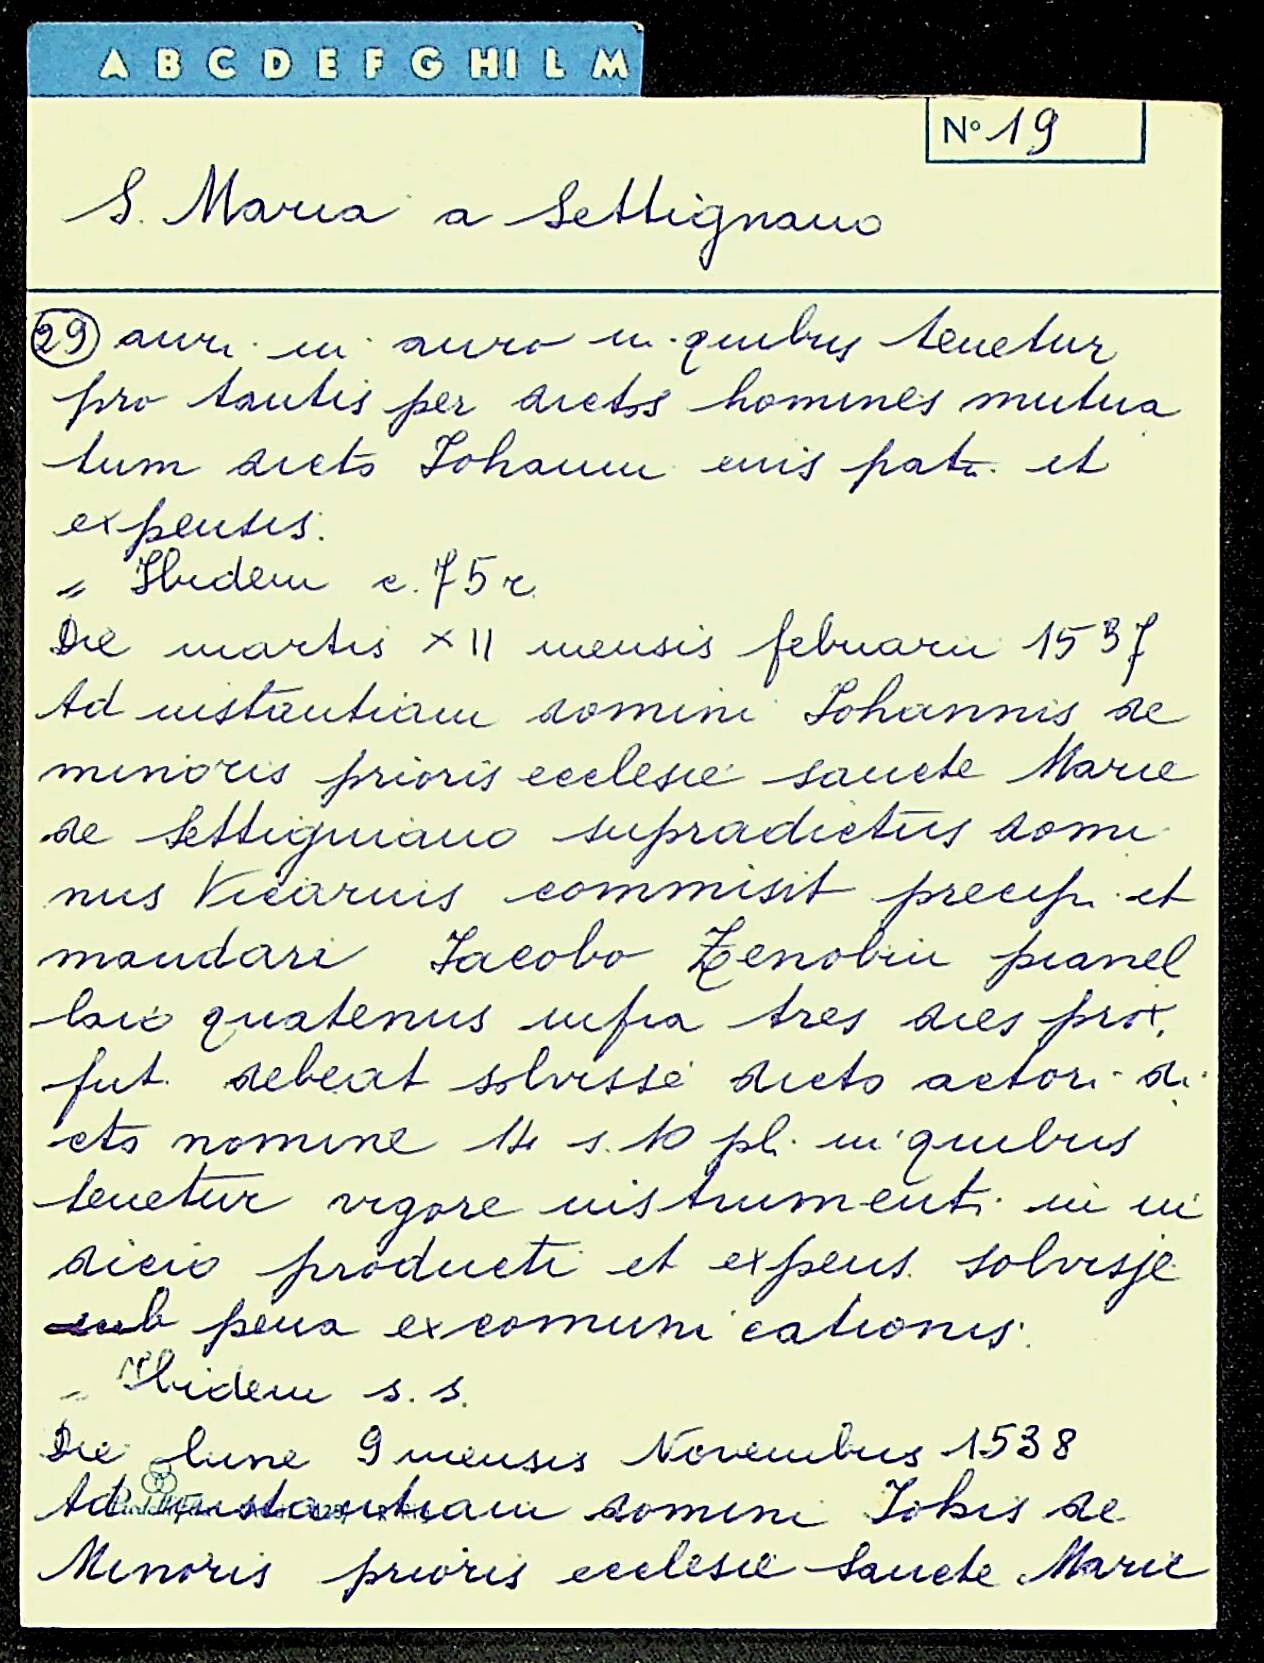 A B C D E F G HI L M
N° 19
S. Maria a Settignano
29 auri in auro in quibus tenetur
pro tantis per dictos homines mutua
tum dicto Iohanni eius patri et
expensis.
" Ibidem c. 75 r
Die martis XII mensis februarii 1537
Ad instantiam domini Iohannis de
minoris prioris ecclesie sancte Marie
de Settigniano supradictus domi
nus Vicarius commisit precip. et
mandari Iacobo Zenobii pianel
laio quatenus infra tres dies prox.
fut. debeat solvisse dicto actori di
cto nomine 14 s. 10 pl. in quibus
tenetur vigore instrumenti in iu
dicio producti et expens. solvisse
sub pena excomunicationis.
" Ibidem s. s.
Die lune 9 mensis Novembris 1538
Ad instantiam domini Iohis de
Minoris prioris ecclesie Sancte Marie